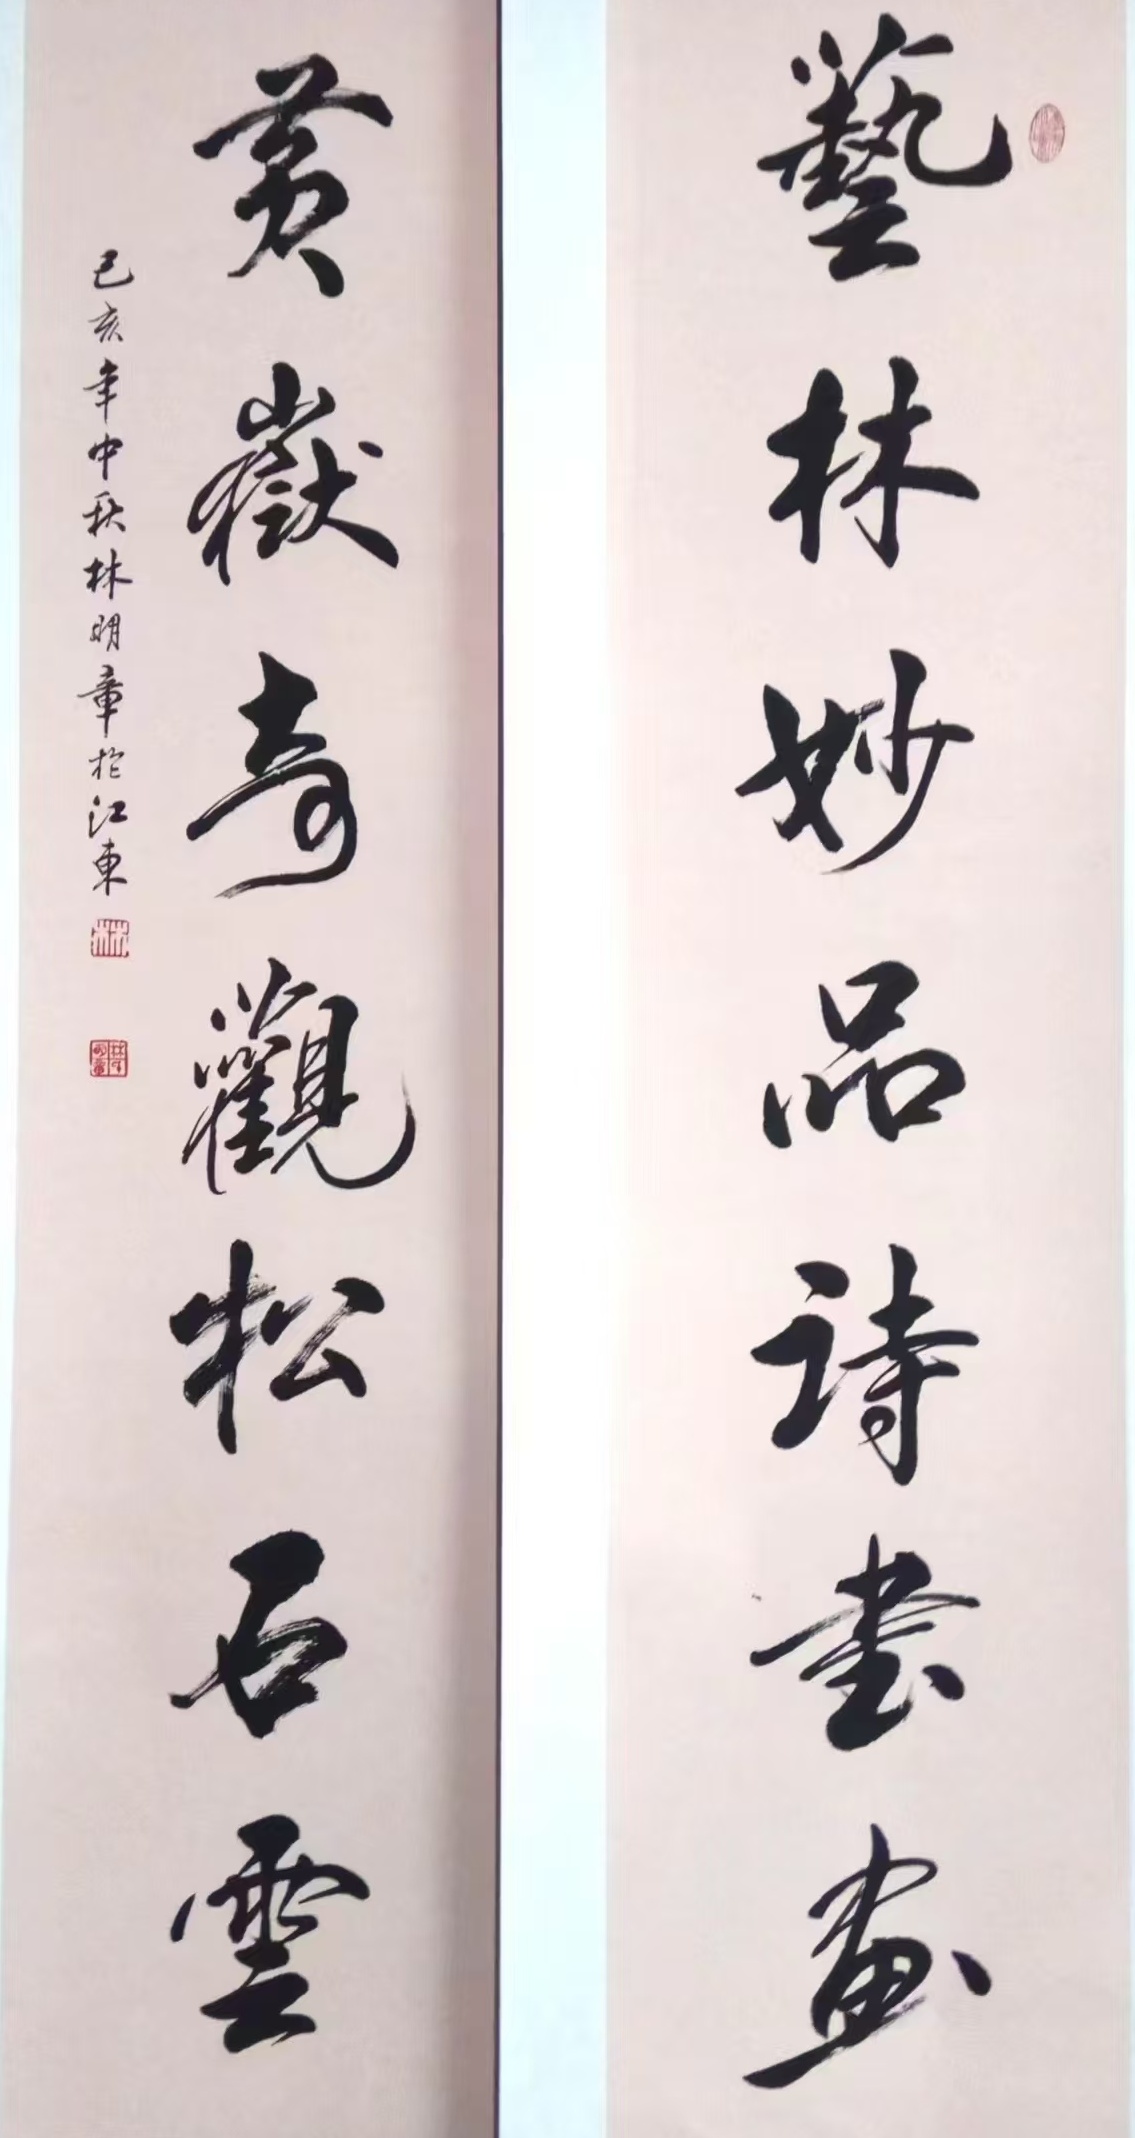 藝林妙品詩書畫
黃嶽奇觀松石雲
己亥年中秋林明章於江東